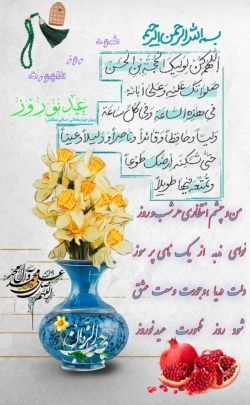 بسم الله الرحمن الرحیم
اللهم کن لولیک الحجة بن الحسن
صلواتک علیه و علی آبائه
فی هذه الساعة و فی کل ساعة
ولیا و حافظا و قائدا و ناصرا و دلیلا و عینا
حتی تسکنه ارضک طوعا
و تمتعه فیها طویلا
روز
عید نوروز
من و چشم انتظاری هر شب و روز
نوای ندبه از یک نای پر سوز
شود روز ظهورت عید نوروز